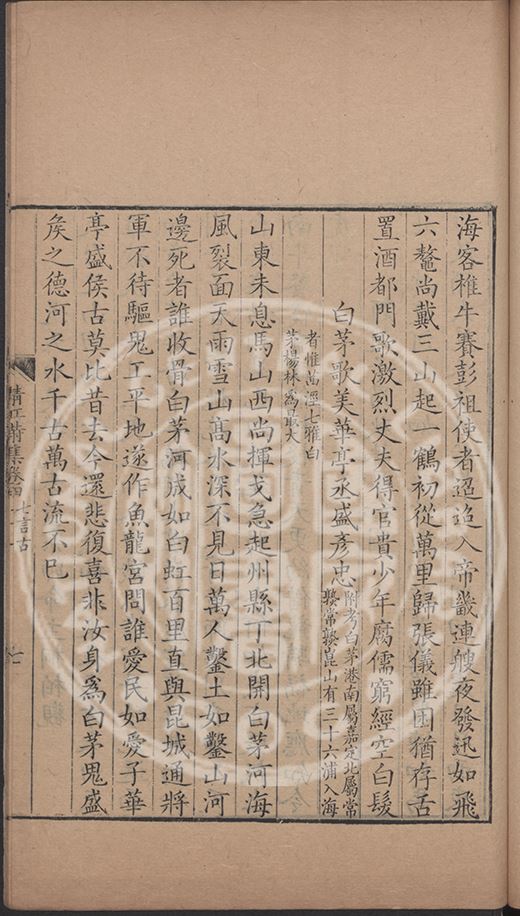 海客椎牛賽彭祖使者迢迢入帝畿連艘夜發迅如飛
六鼇尚戴三山起一鶴初從萬里歸張儀雖困猶存舌
置酒都門歌激烈丈夫得官貴少年腐儒窮經空白髮
白茅歌美華亭丞盛彥忠
附考白茅港南屬嘉定北屬常
熟常熟崑山有三十六浦入海
者惟茜涇七雅白
茅楊林為最大
山東未息馬山西尚揮戈急起州縣丁北開白茅河海
風裂面天雨雪山高水深不見日萬人鑿土如鑿山河
邊死者誰收骨白茅河成如白虹百里直與昆城通將
軍不待驅鬼工平地遂作魚龍宮問誰愛民如愛子華
亭盛侯古莫比昔去今還悲復喜非汝身為白茅鬼盛
矦之德河之水千古萬古流不巳
卷四
七言古
七